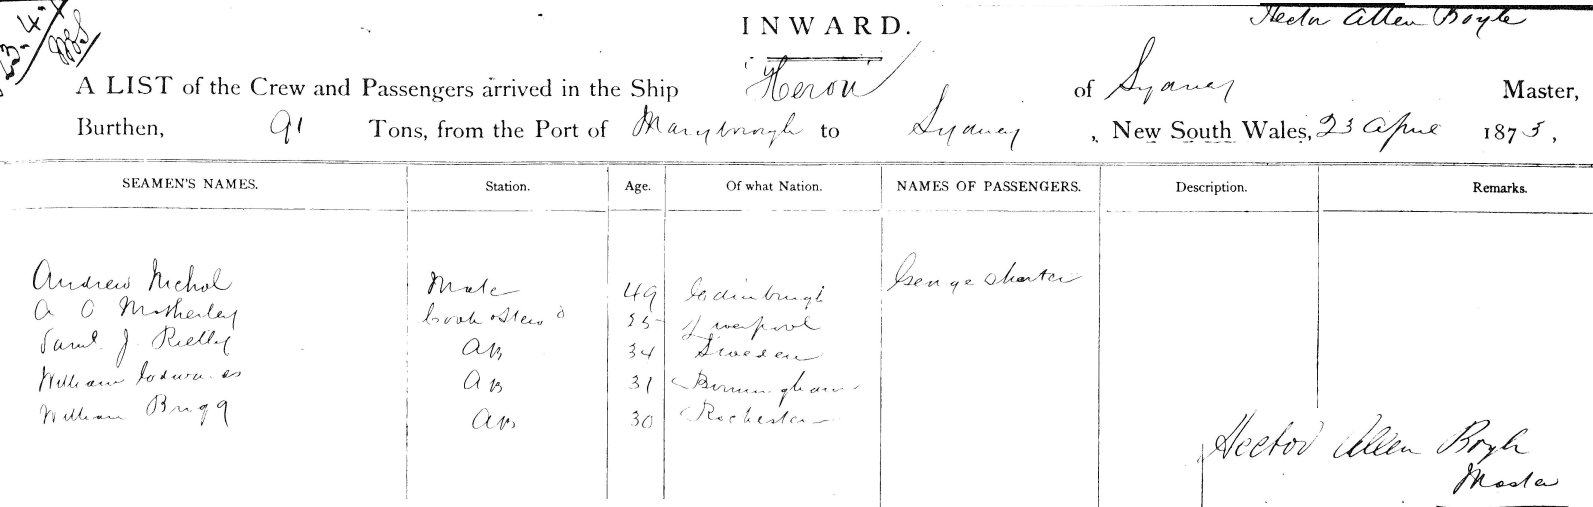 23.4.
INWARD.
Hector Allen Boyle
A LIST of the Crew and Passengers arrived in the Ship "Heron" of Sydney Master,
Burthen, 91 Tons, from the Port of Maryborough to Sydney, New South Wales, 23 April 1873,
SEAMEN'S NAMES. Station. Age. Of what Nation. NAMES OF PASSENGERS. Description. Remarks.
Andrew Nichol Mate 49 Edinburgh George Shorter
A O Motherley Cook & Stewd Liverpool
Saml. J. Rielly AB 34 Sweden
William Edwards AB 31 Birmingham
William Brigg AB 30 Rochester
Hector Allen Boyle
Master